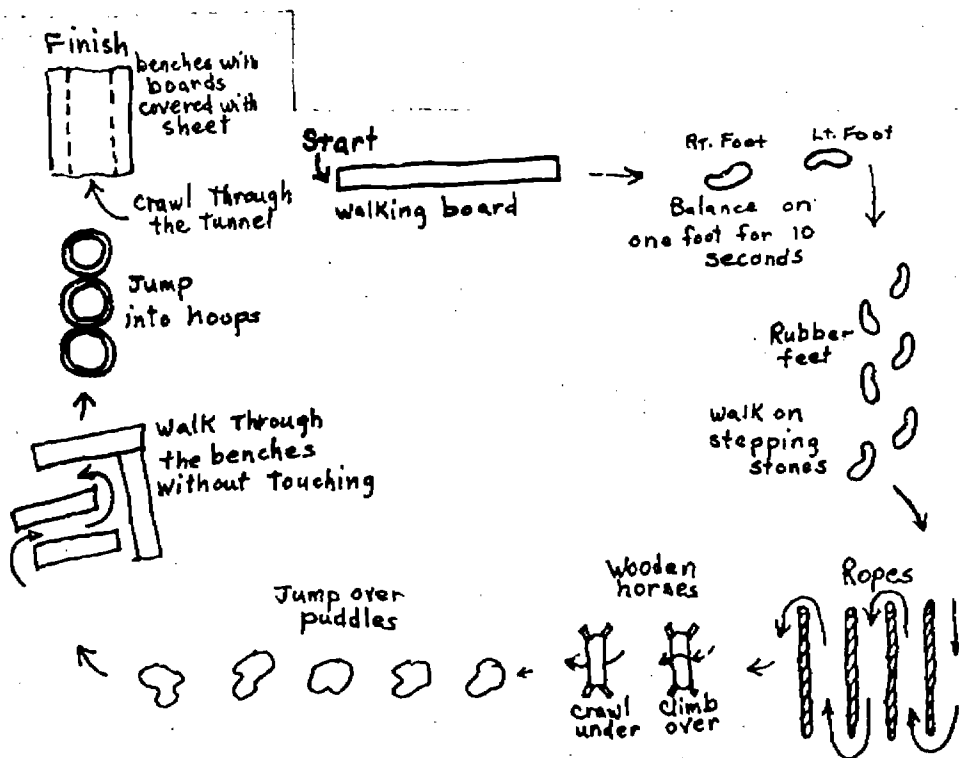 Finish
benches with
boards
covered with
sheet
Crawl Through
the Tunnel
Jump
into hoops
Walk Through
the benches
without Touching
Start
Walking board
RT. Foot
Lt. Foot
Balance on
one foot for 10
seconds
Rubber
feet
Walk on
stepping
stones
Ropes
Wooden
horses
climb
over
crawl
under
Jump over
puddles